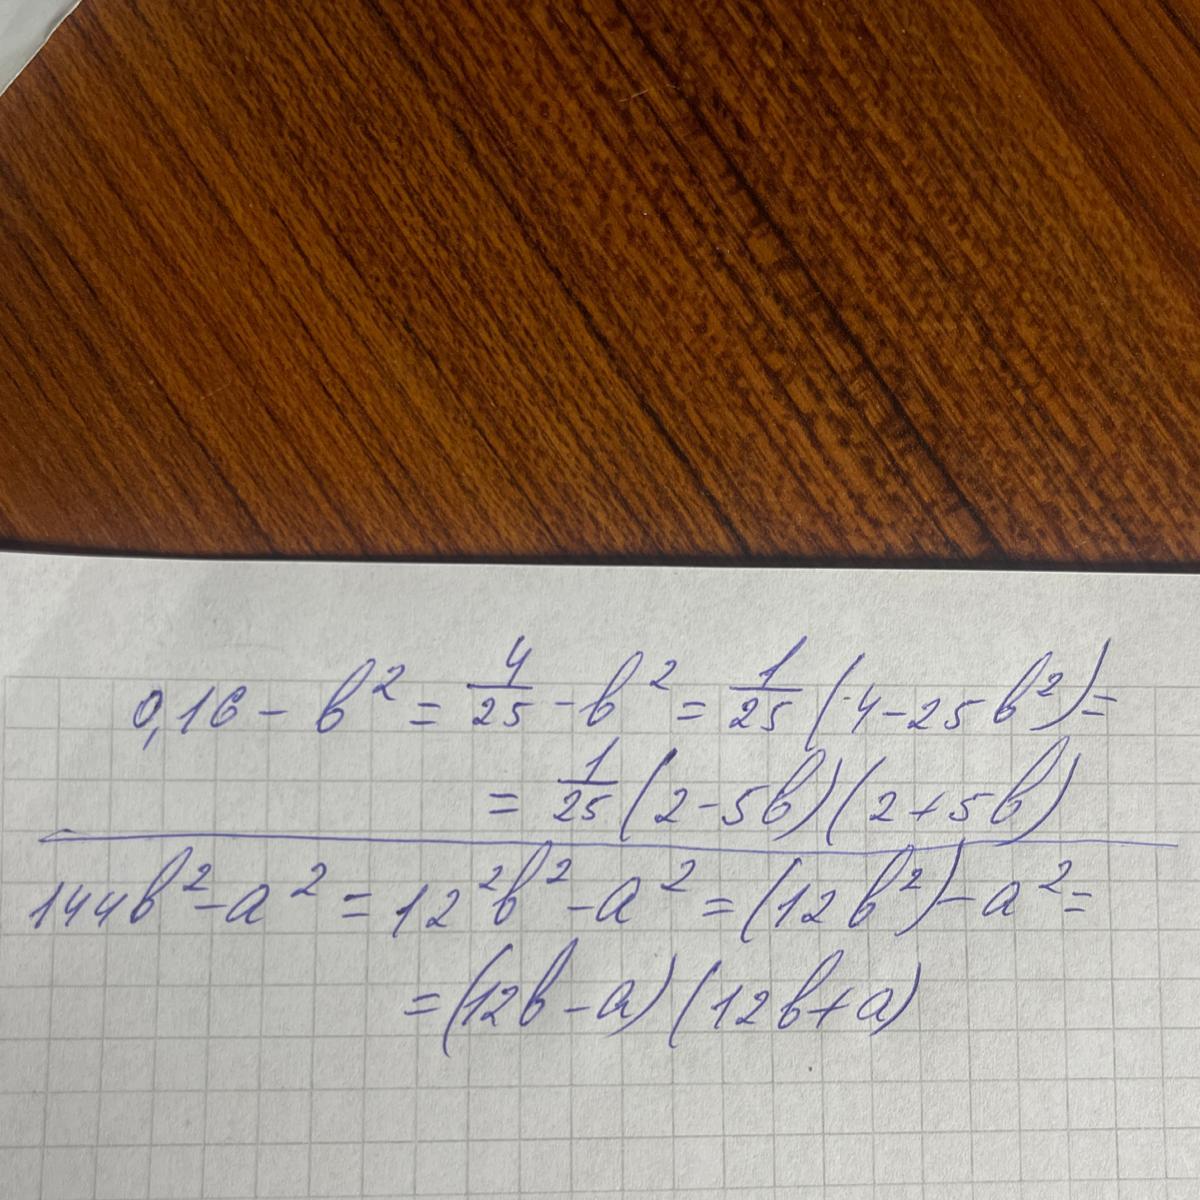 0,16 - b² = 4/25 - b² = 1/25 (4 - 25b²) =
= 1/25 (2 - 5b)(2 + 5b)
144b² - a² = 12²b² - a² = (12b²) - a² =
= (12b - a)(12b + a)